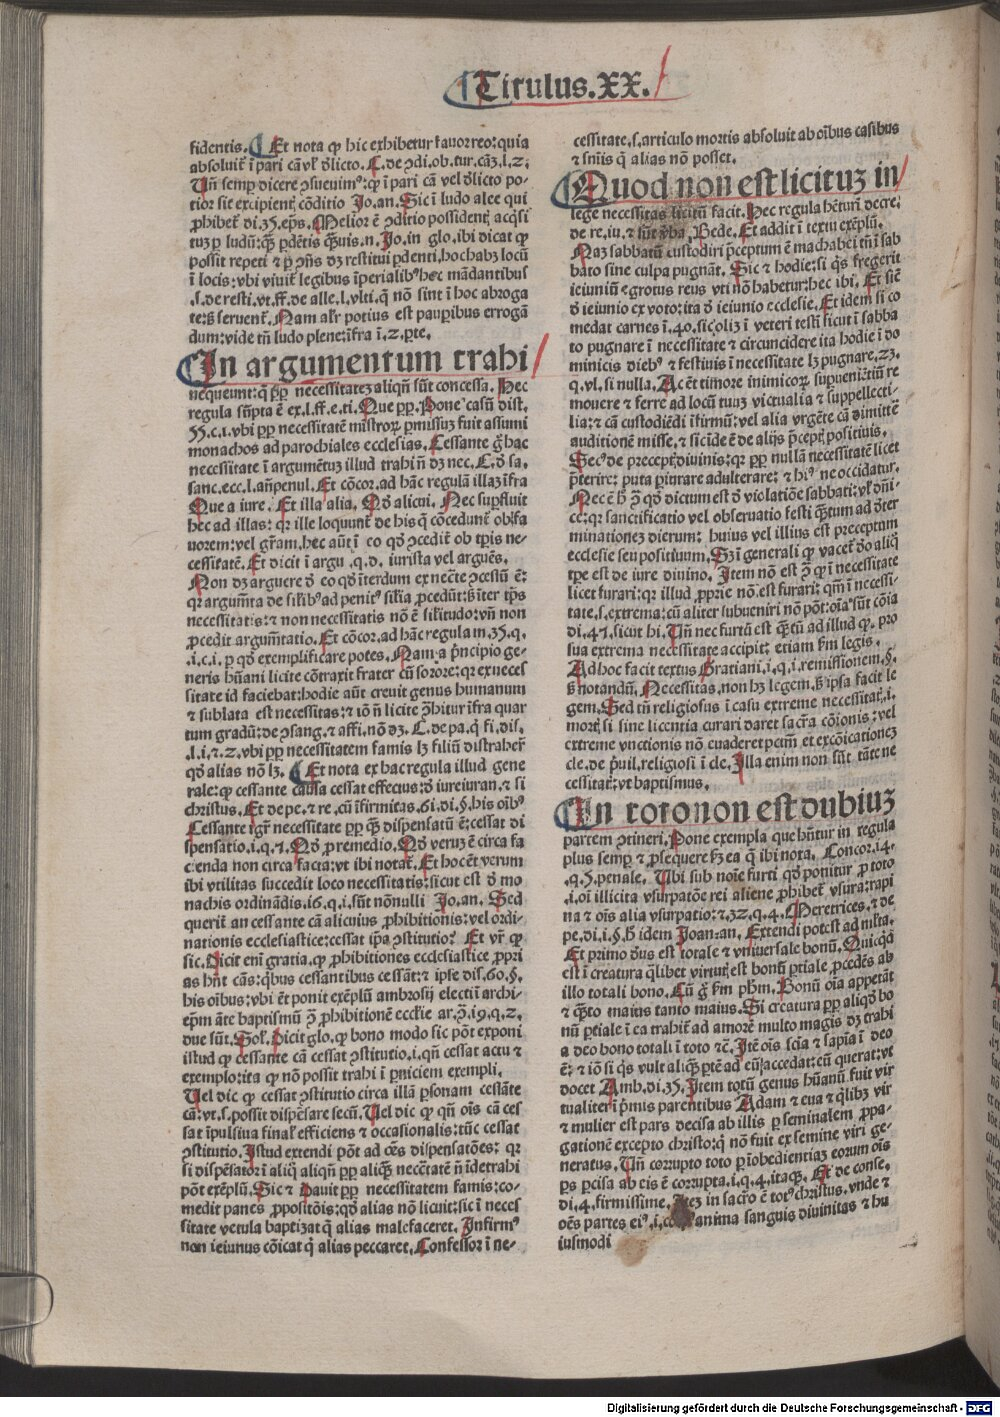 Titulus.XX.
fidentis. Et nota ꝙ hic exhibetur fauor reo: quia
absoluit̉ ī pari cā vl̓ dl̓icto. C. de ↄdi. ob. tur. cāz. l. 2.
Uñ semꝑ dicere ↄsueuimꝰ: ꝙ ī pari cā vel dl̓icto po-
tior sit excipientꝭ cōditio Jo. an. Sic ī ludo alee qui
ꝓhibet̉ di. 35. eps̄. Melior ē ↄditio possidentꝭ acq̄si
possit repeti
ī locis: vbi viuit̉ legibus īperialibꝰ hec mādantibus
.s. de resti. vt. ff. de alle. l. vlti. q̄ nō sint ī hoc abroga
te: ß seruent̉. Nam al̓r potius est pauꝑibus errogā
dum: vide tñ ludo plene: īfra ī. 2. ꝑte.
In argumentum trahi
nequeunt: q̄ ꝓpꝑ necessitatez aliqñ sūt concessa. Hec
regula sūpta ē ex. l. ff. e. ti. Que ꝓp. Pone casū dist.
55. c. i. vbi ꝓp necessitatē mīstroꝝ ꝑmissuz fuit assumi
monachos ad parochiales ecclesias. Cessante g̊ hac
necessitate ī argumētuz illud trahi ñ dz nec. C. d̓ sa.
sanc. ecc. l. añpenul. Et cōcor. ad hāc regulā illaz īfra
Que a iure. Et illa alia. Qd̓ alicui. Nec suꝑfluit
hec ad illas: qꝛ ille loquunt̉ de his q̄ cōcedunt̉ ob fa
uorem: vel gr̄am. hec aūt ī eo qd̓ ↄcedit̉ ob tꝑis ne-
cessitatē. Et dicit ī argu. q. d. iurista vel arguēs.
Non dz arguere d̓ eo qd̓ īterdum ex nec̄te ↄcessū ē:
necessitatis: ⁊ non necessitatis nō ē silitudo: vñ non
ꝓcedit argum̄tatio. Et cōcor. ad hāc regulam. 35. q.
.i. c. i. ꝑ qd̓ exemplificare potes. Nam a p̄ncipio ge-
neris hūani licite cōtraxit frater cū sorore: qꝛ ex neces
sitate id faciebat: hodie aūt creuit genus humanum
⁊ sublata est necessitas: ⁊ iō ñ licite ꝯhibitur īfra quar
tum gradū: de ↄsang. ⁊ affi. nō dz. C. de pa. q̄ fi. dis.
.l. i. ⁊. 2. vbi ꝓp necessitatem famis lz filiū distraher̉
qd̓ alias nō lz. Et nota ex hac regula illud gene
rale: ꝙ cessante causa cessat effectus: d̓ iureiuran. ⁊ si
christus. Et de pe. ⁊ re. cū īfirmitas. 61. di. §. his oībꝰ
Cessante igr̉ necessitate ꝓp quā dispensatū ē: cessat di
spensatio. i. q. 7. Qd̓ pro remedio. Qd̓ veruz ē circa fa
cienda non circa facta: vt ibi notat̉. Et hoc ēt verum
ibi vtilitas succedit loco necessitatis: sicut est d̓ mo
nachis ordinādis. 16. q. i. sūt nōnulli Jo. an. Sed
querit̉ an cessante cā alicuius ꝓhibitionis: vel ordi-
nationis ecclesiastice: cessat ip̄a ↄstitutio? Et vr̄ ꝙ
sic. Dicit eni gratia. ꝙ ꝓhibitiones ecclesiastice ꝓpri
as hn̄t cās: q̄bus cessantibus cessāt: ⁊ ipse dis. 60. §.
his oībus: vbi ēt ponit exēplū ambrosij electi ī archi-
epm̄ āte baptismū ꝯ ꝓhibitionē eccl̓ie ar. ꝯ. 19. q. 2.
due sūt. Sol̓. Dicit glo. ꝙ bono modo sic pōt exponi
istud ꝙ cessante cā cessat ↄstitutio. i. qñ cessat actu ⁊
exemplo: ita ꝙ nō possit trahi ī ꝑniciem exempli.
Uel dic ꝙ cessat ↄstitutio circa illā ꝑsonam cessāte
cā: vt. s. possit dispēsare secū. Uel dic ꝙ qñ oīs cā ces
sat īpulsiua final̓ efficiens ⁊ occasionalis: tūc cessat
ↄstitutio. Istud extendi pōt ad oēs dispensatōes: qꝛ
si dispēsator ī aliq̄ aliqñ ꝓp aliquā nec̄tatē ñ īde trahi
pōt exēplū. Sic ⁊ Dauit ꝓp necessitatem famis: co-
medit panes ꝓpositōis: qd̓ alias nō licuit: sic ī neces
sitate vetula baptizat q̄ alias malefaceret. Infirmꝰ
non ieiunus cōicat q̄ alias peccaret. Confessor ī ne-
cessitate. s. articulo mortis absoluit ab oībus casibus
⁊ sn̄iis q̄ alias nō posset.
Quod non est licituz in
lege necessitas licitū facit. Hec regula hētur ī decre.
de re. iu. ⁊ sūt v̓ba Bede. Et addit ī textu exēplū.
Naz sabbatū custodiri p̄ceptum ē machabei tn̄ ī sab
bato sine culpa pugnāt. Sic ⁊ hodie: si q̇s fregerit
ieiuniū egrotus reus voti nō habetur: hec ibi. Et sic̄
d̓ ieiunio ex voto: ita d̓ ieiunio ecclesie. Et idem si co
medat carnes ī. 40. sic oliz ī veteri testī sicut ī sabba
to pugnare ī necessitate ⁊ circuncidere ita hodie ī do
minicis diebꝰ ⁊ festiuis ī necessitate lz pugnare. 23.
q. vl. si nulla. Ac ēt timore inimicoꝝ suꝑueniētiū re
mouere ⁊ ferre ad locū tuuz victualia ⁊ suppellecti-
lia: ⁊ cā custodiēdi īfirmū: vel alia vrgēte cā dimittē
auditionē misse. ⁊ sic ide ē de alijs p̄ceptꝭ positiuis.
Secꝰ de preceptꝭ diuinis: qꝛ ꝓp nullā necessitatē licet
p̄terire: puta ꝑiurare adulterare: ⁊ hiꝰ ne occidatur.
Nec ē ħ ꝯ qd̓ dictum est d̓ violatiōe sabbati: vl̓ dn̄i-
ce: qꝛ sanctificatio vel obseruatio festi quātum ad d̓ter
minationez dierum: huius vel illius est preceptum
ecclesie seu positiuum. Sz ī generali ꝙ vacet̉ d̓o aliq̄
tꝑe est de iure diuino. Item nō est ꝯ ꝙ ī necessitate
licet furari: qꝛ illud ꝓprie nō est furari: qm̄ ī necessi-
tate. s. extrema: cū aliter subueniri nō pōt: oīa sūt cōia
di. 47. sicut hi. Uñ nec furtū est quātū ad illud ꝙ pro
sua extrema necessitate accipit: etiam ẜm legis.
Ad hoc facit textus Gratiani. i. q. i. remissionem. §.
ß notandū. Necessitas. non hz legem. ß ipsa facit le
gem. Sed tn̄ religiosus ī casu extreme necessitatꝭ. i.
mortꝭ si sine licentia curari daret sacr̄a cōionis: vel
extreme vnctionis nō euaderet pctm̄ et excōicationez
cle. de p̄uil. religiosi ī cle. Illa enim non sūt tāte ne
cessitatꝭ: vt baptismus.
In toto non est dubiuz
partem ↄtineri. Pone exempla que hn̄tur in regula
plus semꝑ ⁊ ꝓsequere ẜz ea q̄ ibi nota. Concor. 14.
.q. 5. penale. Ubi sub noīe furti qd̓ ponitur ꝓ toto
.i. oī illicita vsurpatōe rei aliene ꝓhibet̉ vsura: rapi
na ⁊ oīs alia vsurpatio: ⁊. 32. q. 4. Meretrices. ⁊ de
pe. di. i. §. ħ idem Joan. an. Extendi potest ad mlta.
Et primo d̓us est totale ⁊ vniuersale bonū. Quicqd̓
est ī creatura q̄libet virtutꝭ est bonū ꝑtiale ꝓcedēs ab
illo totali bono. Cū g̊ ẜm phm̄. Bonū oīa appetāt
⁊ quāto maius tanto maius. Si creatura ꝓp aliqd̓ bo
nū ꝑtiale ī ea trahit̉ ad amorē multo magis dz trahi
a deo bono totali ī toto ⁊c̄. Itē oīs scīa ⁊ sapīa ī deo
ē: ⁊ iō si q̇s vult aliquā ꝑtē ad eū accedat: eū querat: vt
docet Amb. di. 35. Item totū genus hūanū fuit vir
tualiter ī p̄mis parentibus Adam ⁊ eua ⁊ q̇libz vir
⁊ mulier est pars decisa ab illis ꝑ seminalem ꝓpa-
gationē excepto christo: q̇ nō fuit ex semine viri ge-
neratus. Uñ corrupto toto ꝑ īobedientiaz eorum oīs
ꝑs ꝑcisa ab eis ē corrupta. i. q. 4. itaqꝫ. Et de conse.
di. 4. firmissime. Itez in sacr̄o ē totꝰ christus. vnde ⁊
oēs partes eiꝰ. i. anima sanguis diuinitas ⁊ hu
iusmodi
Digitalisierung gefördert durch die Deutsche Forschungsgemeinschaft - DFG